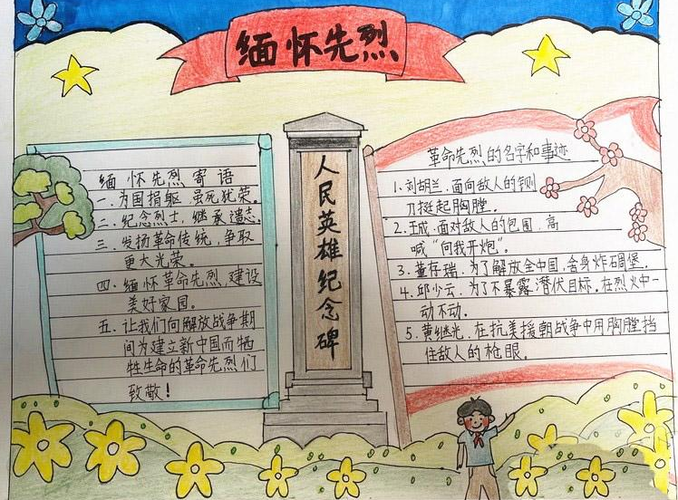 缅怀先烈
缅怀先烈寄语
一.为国捐躯 虽死犹荣。
二.纪念烈士,继承遗志。
三.发扬革命传统,争取
更大光荣。
四.缅怀革命先烈,建设
美好家园。
五.让我们向解放战争期
间为建立新中国而牺
牲生命的革命先烈们
致敬!
人民英雄纪念碑
革命先烈的名字和事迹
1.刘胡兰.面向敌人的铡
刀挺起胸膛。
2.王成.面对敌人的包围,高
喊“向我开炮”。
3.董存瑞.为了解放全中国,舍身炸碉堡.
4.邱少云.为了不暴露潜伏目标.在烈火中一
动不动.
5.黄继光.在抗美援朝战争中用胸膛挡
住敌人的枪眼。